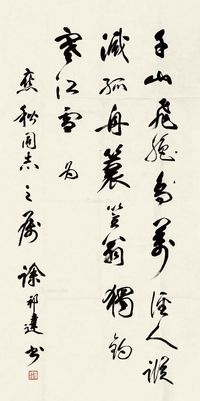 千山飛絕鳥萬徑人蹤
滅孤舟蓑笠翁獨釣
寒江雪 为
秋同志之屬 書